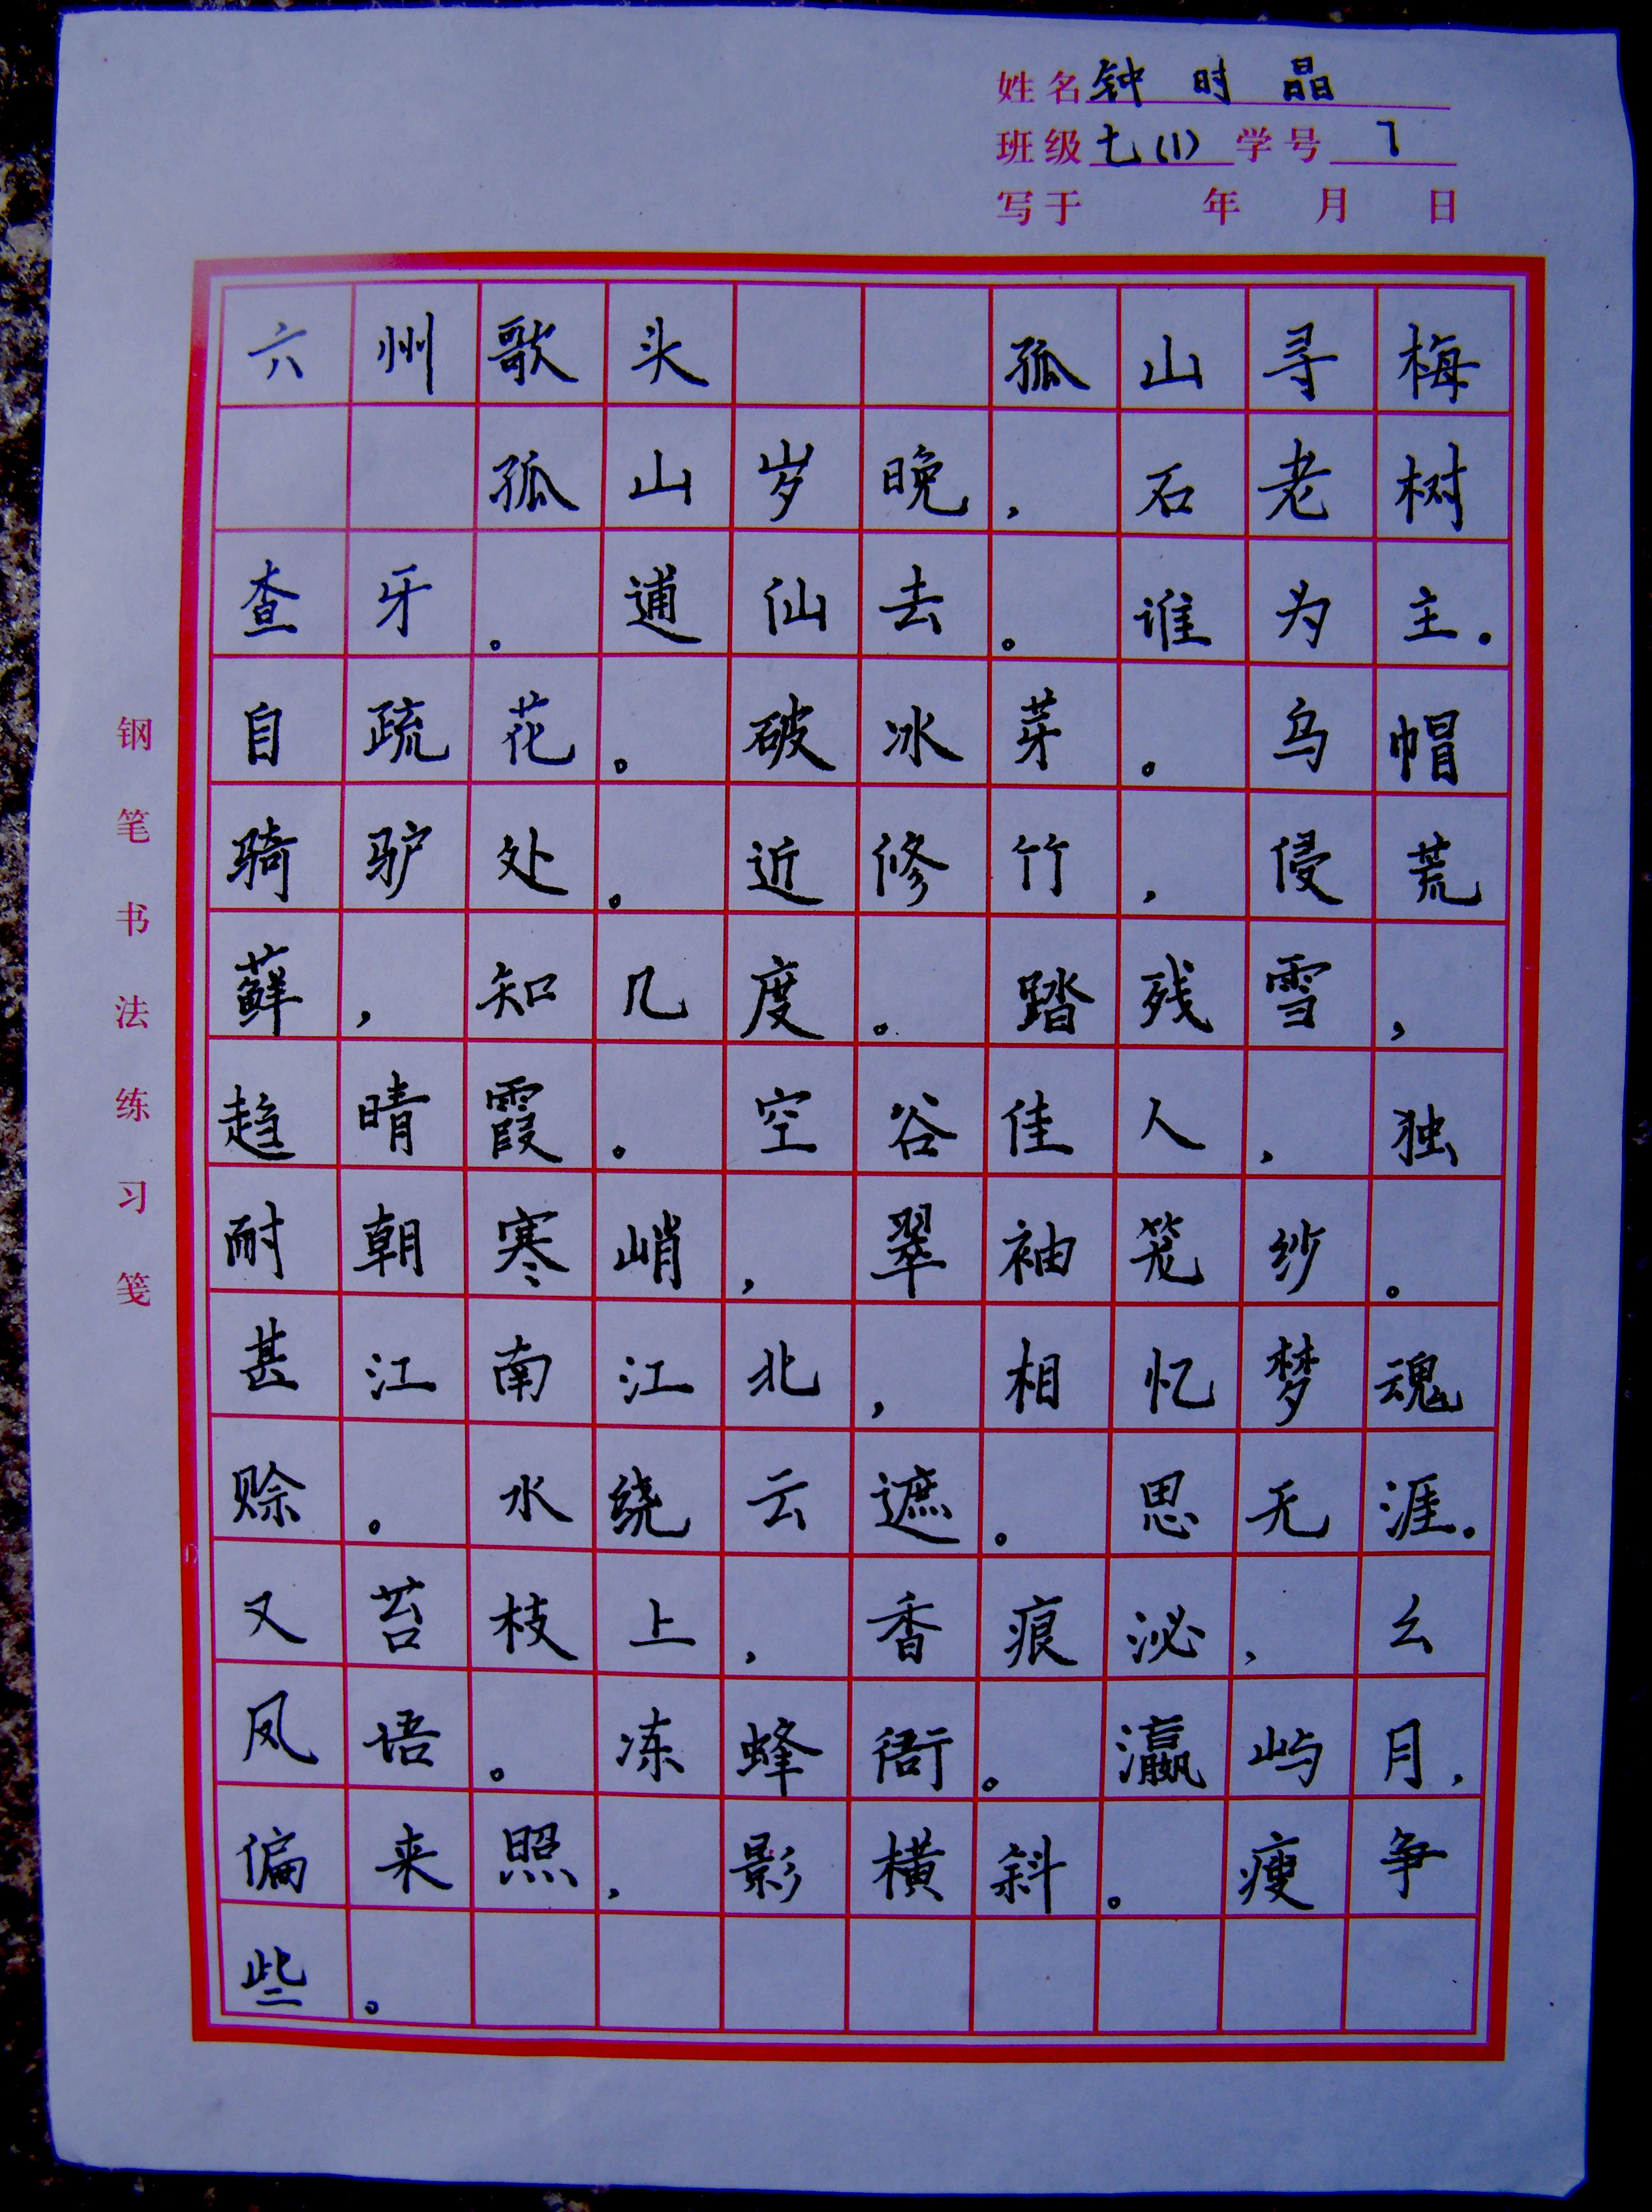 姓名 钟时晶
班级 七(1) 学号 7
写于 年 月 日
六州歌头 孤山寻梅
孤山岁晚，石老树
查牙。逋仙去。谁为主。
自疏花。破冰芽。乌帽
骑驴处。近修竹，侵荒
藓，知几度。踏残雪，
趋晴霞。空谷佳人，独
耐朝寒峭，翠袖笼纱。
甚江南江北，相忆梦魂
赊。水绕云遮。思无涯。
又苔枝上，香痕沁，幺
凤语。冻蜂衙。瀛屿月，
偏来照，影横斜。瘦争
些。
钢笔书法练习笺